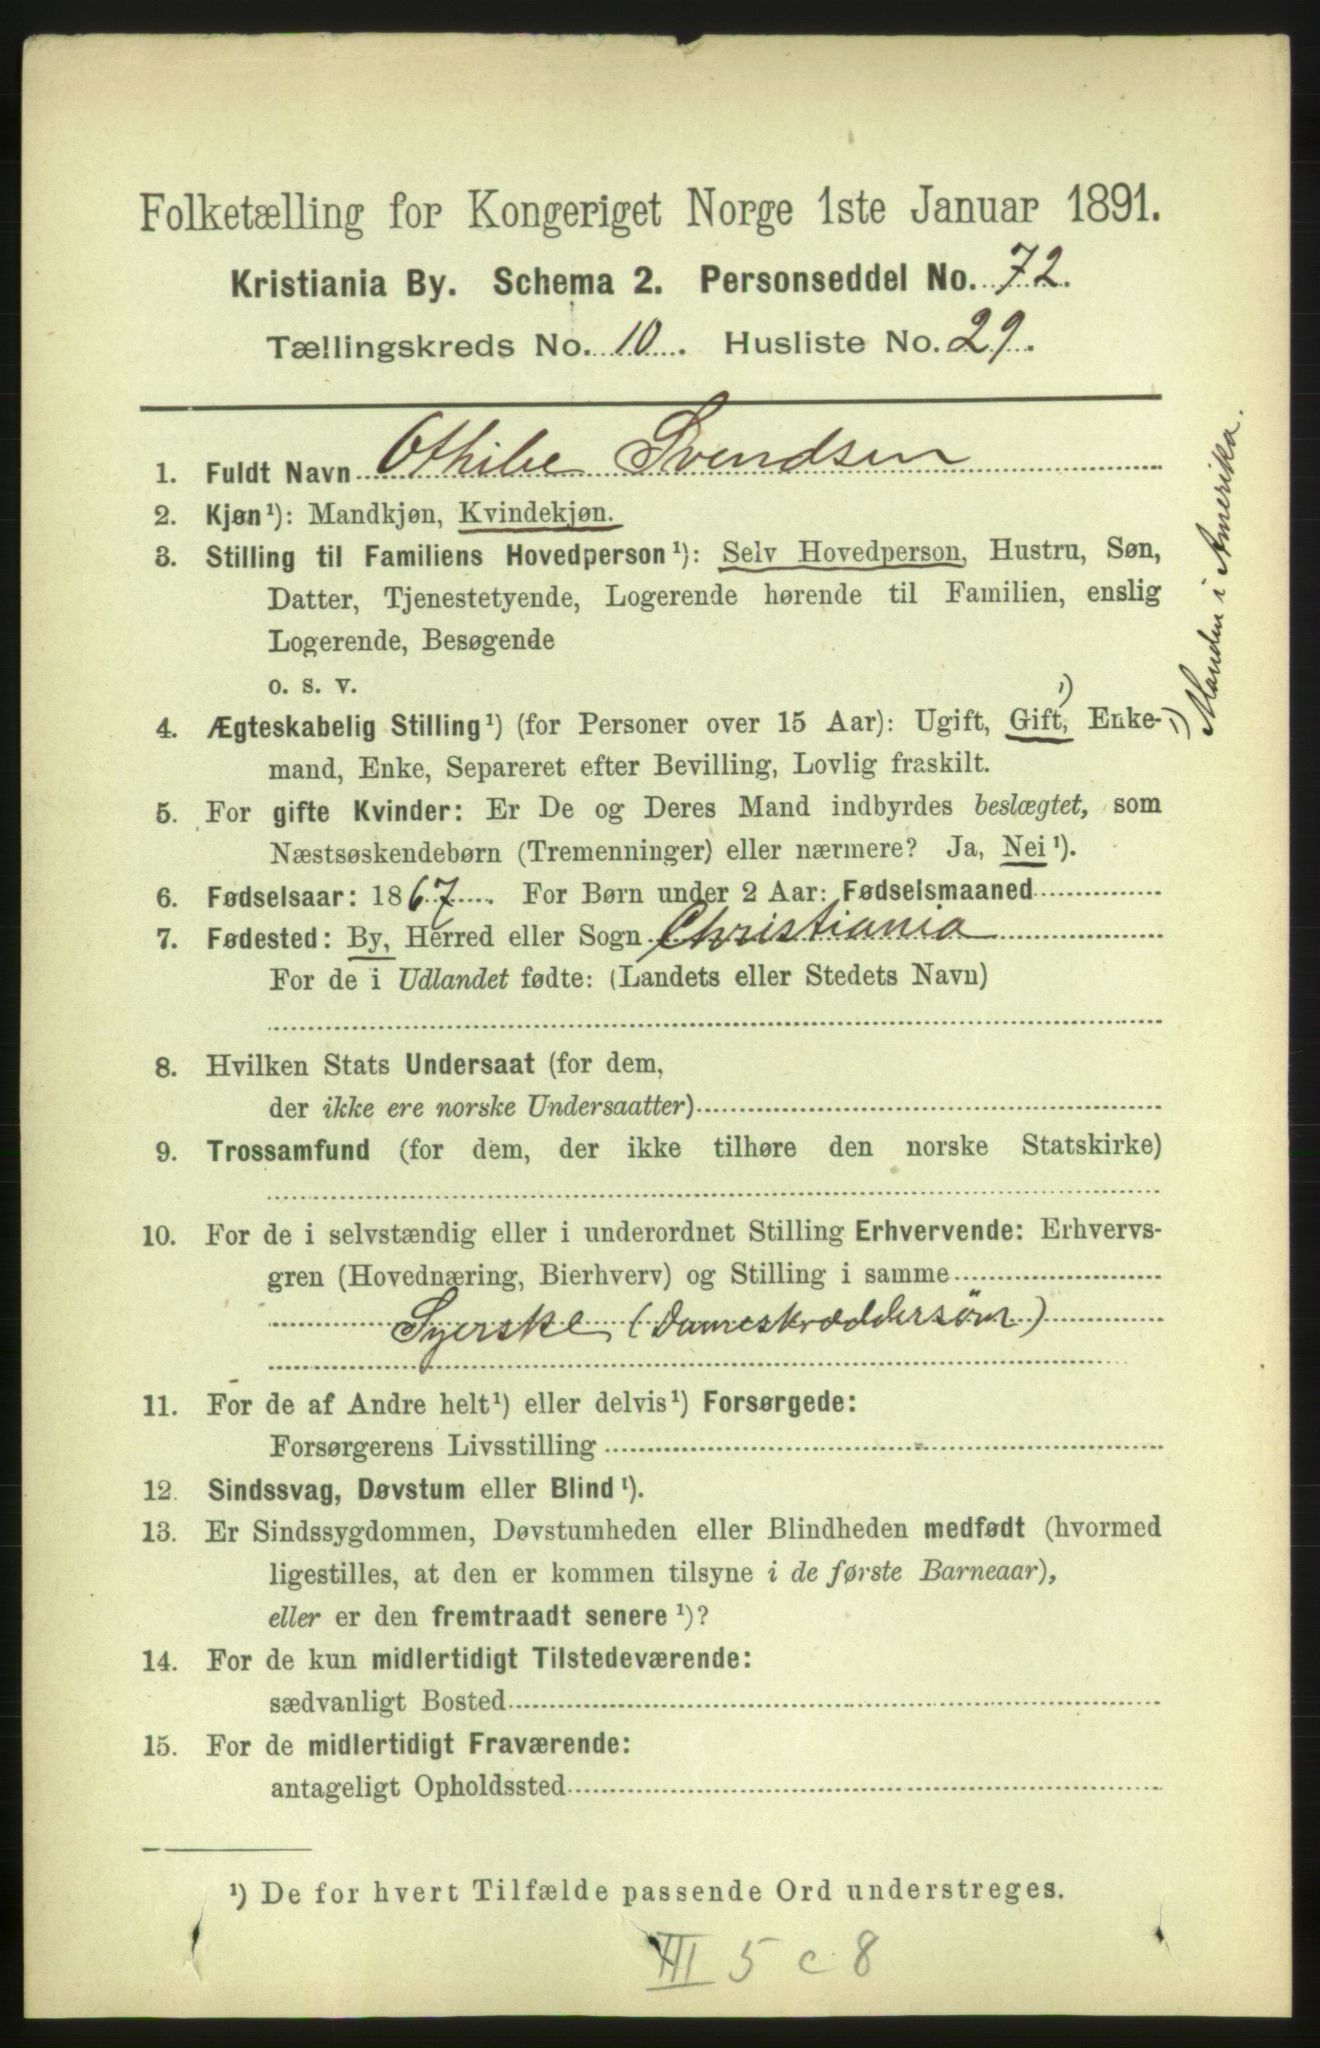 Folketælling for Kongeriget Norge 1ste Januar 1891.
Kristiania By. Schema 2. Personseddel No. 72.
Tællingskreds No. 10. Husliste No. 29.
1. Fuldt Navn Othilie Svendsen
2. Kjøn¹): Mandkjøn, Kvindekjøn.
3. Stilling til Familiens Hovedperson¹): Selv Hovedperson, Hustru, Søn,
Datter, Tjenestetyende, Logerende hørende til Familien, enslig
Logerende, Besøgende
o. s. v.
4. Ægteskabelig Stilling¹) (for Personer over 15 Aar): Ugift, Gift, ¹) Enke-
mand, Enke, Separeret efter Bevilling, Lovlig fraskilt.
¹) Manden i Amerika.
5. For gifte Kvinder: Er De og Deres Mand indbyrdes beslægtet, som
Næstsøskendebørn (Tremenninger) eller nærmere? Ja, Nei¹).
6. Fødselsaar: 1867. For Børn under 2 Aar: Fødselsmaaned
7. Fødested: By, Herred eller Sogn Christiania
For de i Udlandet fødte: (Landets eller Stedets Navn)
8. Hvilken Stats Undersaat (for dem,
der ikke ere norske Undersaatter)
9. Trossamfund (for dem, der ikke tilhøre den norske Statskirke)
10. For de i selvstændig eller i underordnet Stilling Erhvervende: Erhvervs-
gren (Hovednæring, Bierhverv) og Stilling i samme
Syerske (Dameskræddersøm)
11. For de af Andre helt¹) eller delvis¹) Forsørgede:
Forsørgerens Livsstilling
12. Sindssvag, Døvstum eller Blind¹).
13. Er Sindssygdommen, Døvstumheden eller Blindheden medfødt (hvormed
ligestilles, at den er kommen tilsyne i de første Barneaar),
eller er den fremtraadt senere¹)?
14. For de kun midlertidigt Tilstedeværende:
sædvanligt Bosted
15. For de midlertidigt Fraværende:
antageligt Opholdssted
¹) De for hvert Tilfælde passende Ord understreges.
III 5 c 8